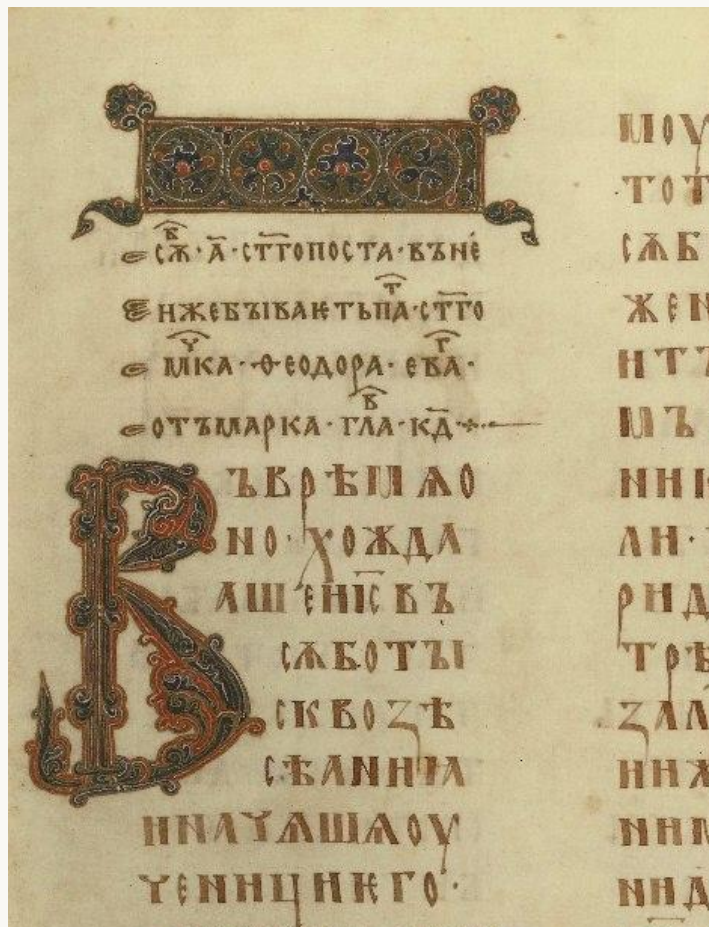 сѫⷡ҇·а҃·ст҃гопоста·въне
ѥнжебываѥтьпаⷮ҇·ст҃го
мкаⷱ҇·ѳеодора·еваⷢ҇·
отъмарка·глаⷡ҇·кд҃·
Въврѣмѧо
но·хожда
ашеиі҃свъ
сѫботы
сквозѣ
сѣаниꙗ
иначѧшѧоу
ченициѥго·
моу
тот
сѫб
жен
итъ
мъ
ник
ли·
рид
трѣ
зал
ниж
ним
нид